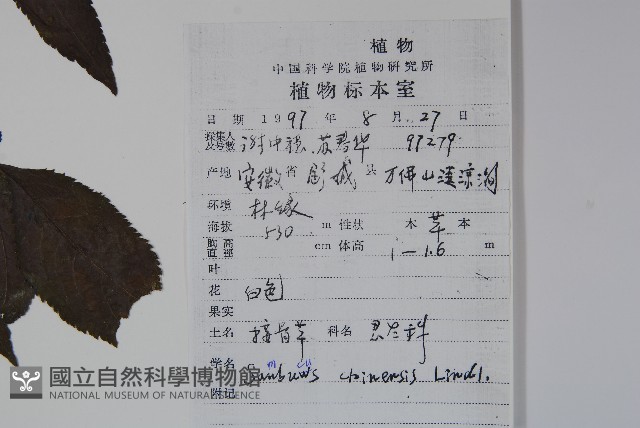 植物
中国科学院植物研究所
植物标本室
日期 1997 年 8 月 27 日
採集人及号數 谢中稳、苏 华 97279
产地 安徽 省 城 县 万佛山
环境 林缘
海拔 530 m 性状 木 草 本
胸高直徑 cm 体高 1-1.6 m
叶
花 白色
果实
土名 接骨草 科名 忍冬科
学名 chinensis Lindl.
附记
國立自然科學博物館
NATIONAL MUSEUM OF NATURAL SCIENCE